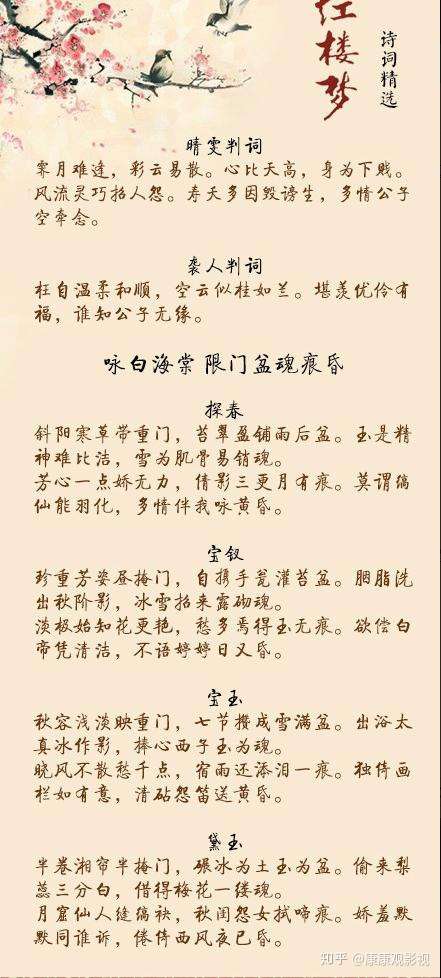 红楼梦
诗词精选
晴雯判词
霁月难逢，彩云易散。心比天高，身为下贱。
风流灵巧招人怨。寿夭多因毁谤生，多情公子
空牵念。
袭人判词
枉自温柔和顺，空云似桂如兰。堪羡优伶有
福，谁知公子无缘。
咏白海棠 限门盆魂痕昏
探春
斜阳寒草带重门，苔翠盈铺雨后盆。玉是精
神难比洁，雪为肌骨易销魂。
芳心一点娇无力，倩影三更月有痕。莫谓缟
仙能羽化，多情伴我咏黄昏。
宝钗
珍重芳姿昼掩门，自携手瓮灌苔盆。胭脂洗
出秋阶影，冰雪招来露砌魂。
淡极始知花更艳，愁多焉得玉无痕。欲偿白
帝凭清洁，不语婷婷日又昏。
宝玉
秋容浅淡映重门，七节攒成雪满盆。出浴太
真冰作影，捧心西子玉为魂。
晓风不散愁千点，宿雨还添泪一痕。独倚画
栏如有意，清砧怨笛送黄昏。
黛玉
半卷湘帘半掩门，碾冰为土玉为盆。偷来梨
蕊三分白，借得梅花一缕魂。
月窟仙人缝缟袂，秋闺怨女拭啼痕。娇羞默
默同谁诉，倦倚西风夜已昏。
知乎 @康康观影视